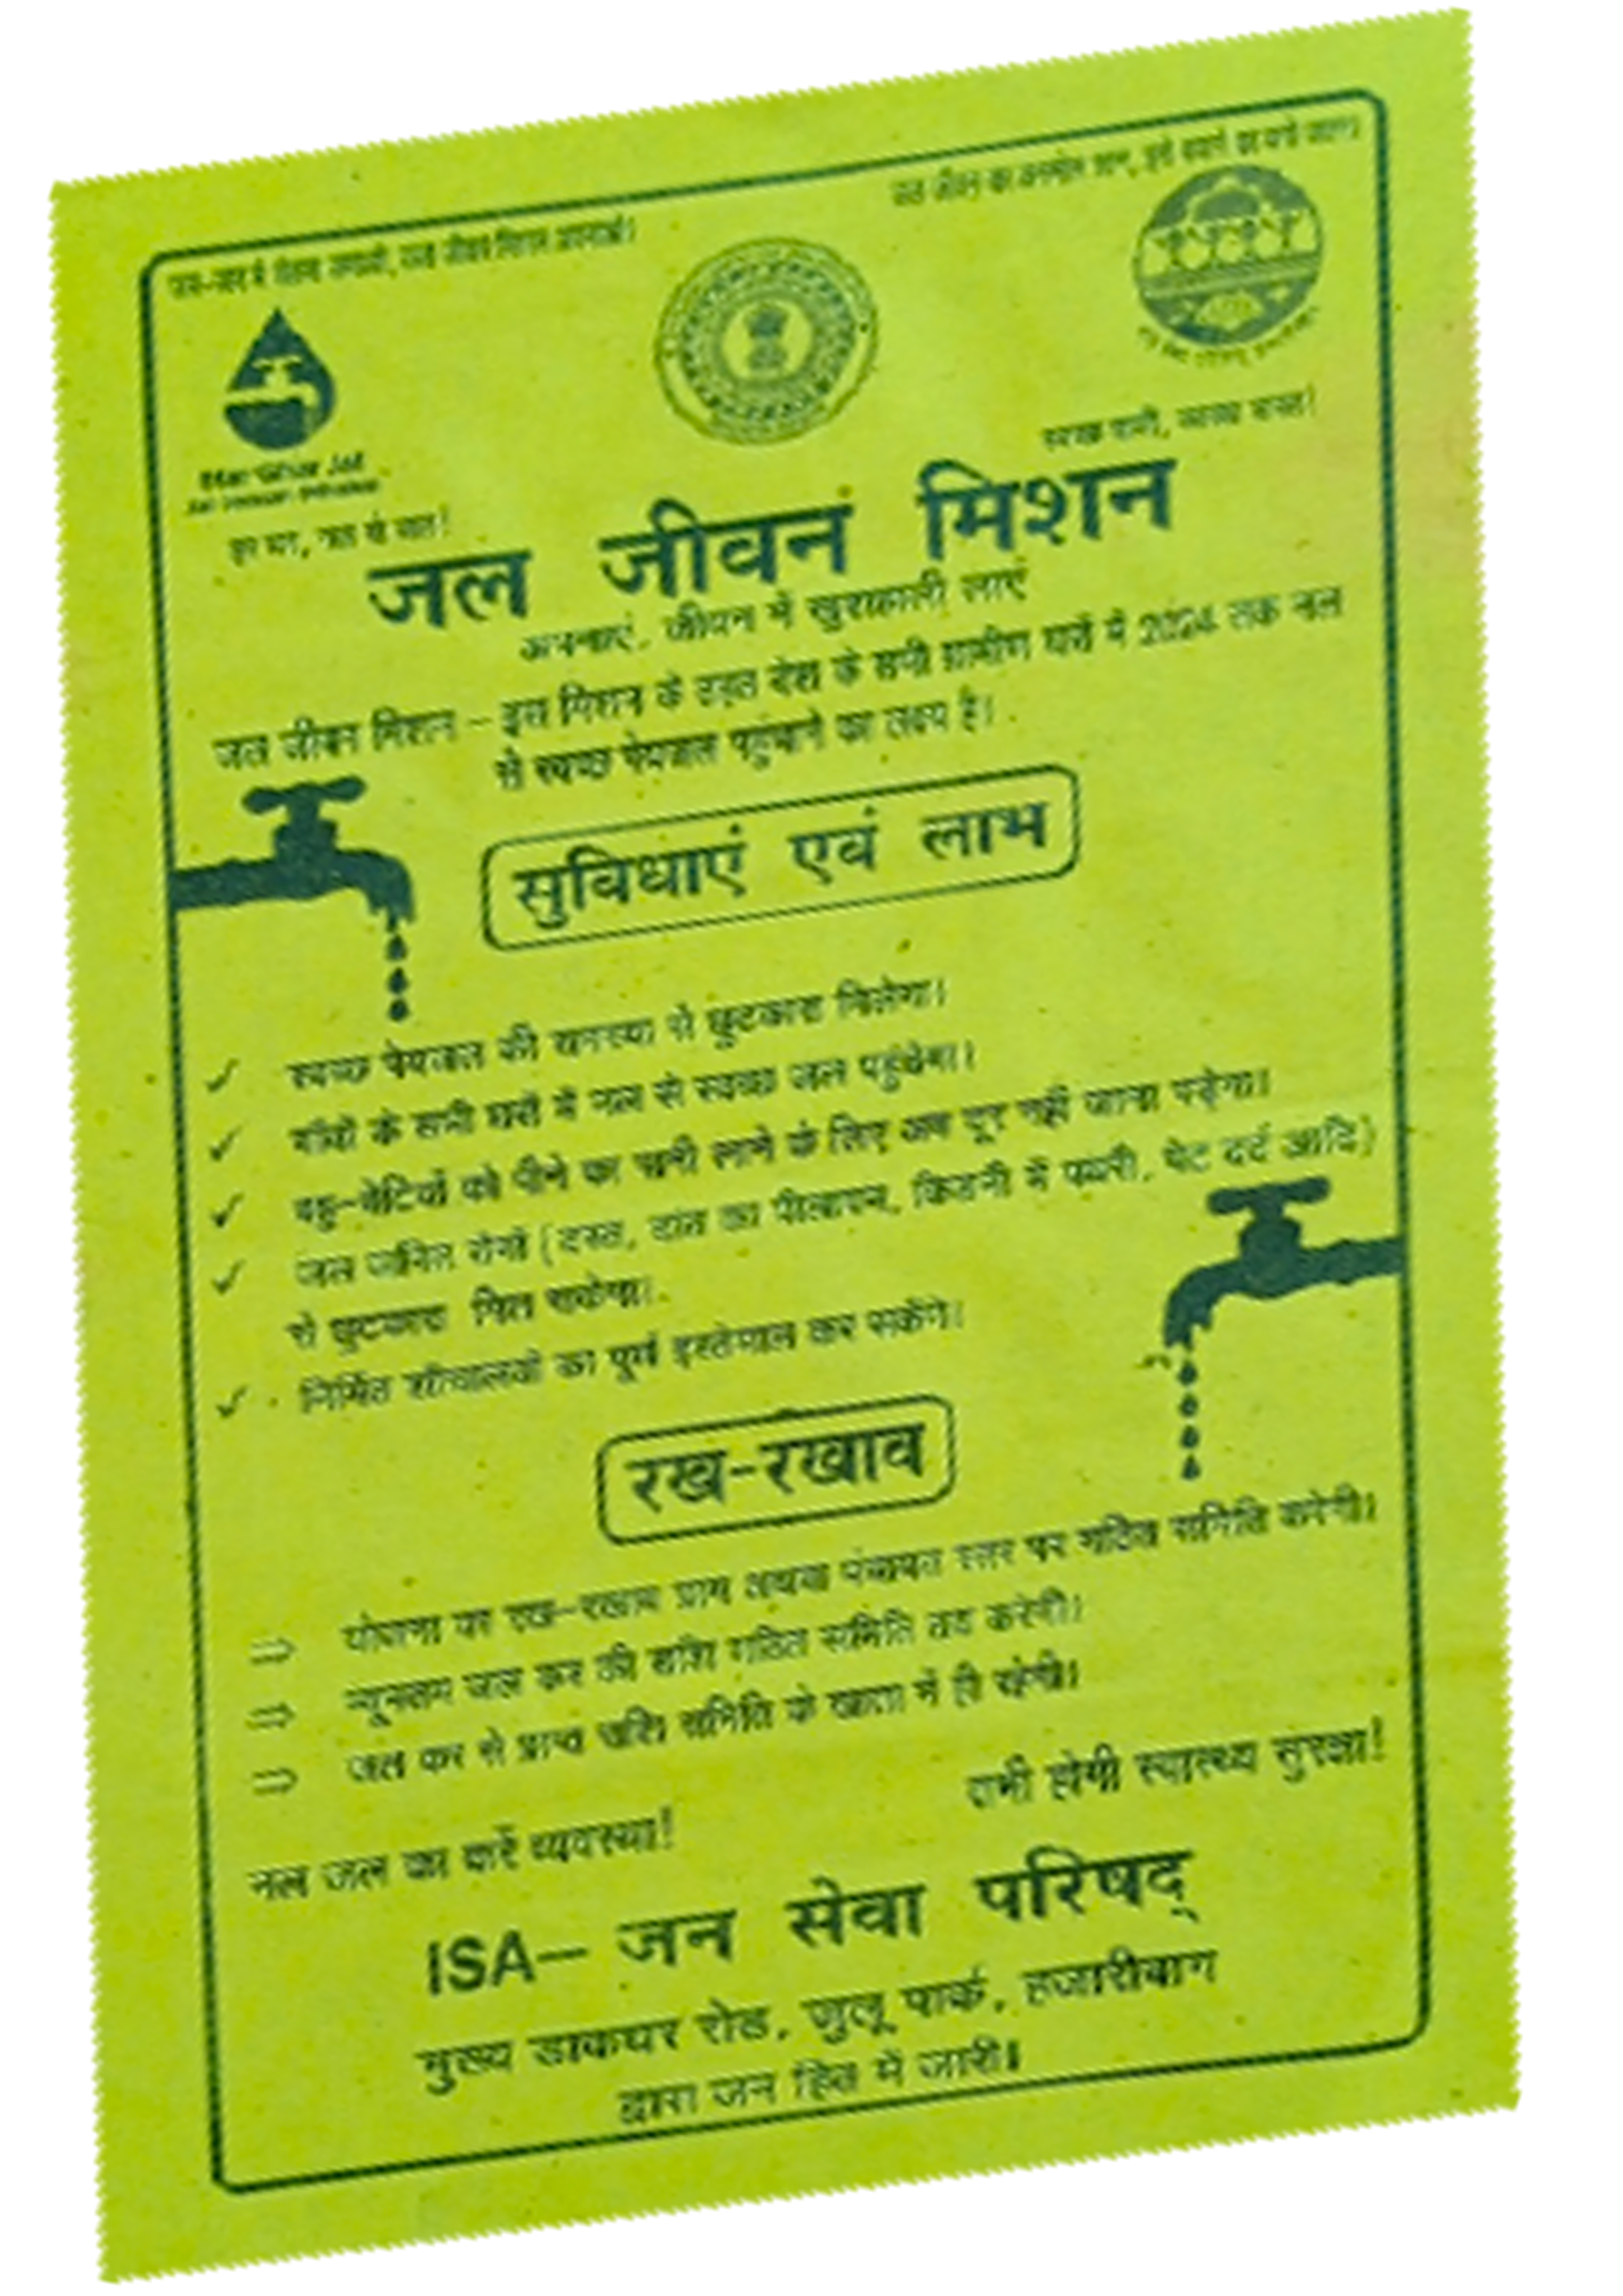 जन-जन में चेतना जगायें, जल जीवन मिशन अपनायें।
जल जीवन का अनमोल रतन, इसे बचाने का करो जतन।
Har Ghar Jal
Jal Jeevan Mission
हर घर, नल से जल!
स्वच्छ पानी, स्वस्थ भारत!
जल जीवन मिशन
अपनाएं, जीवन में खुशहाली लाएं
जल जीवन मिशन – इस मिशन के तहत देश के सभी ग्रामीण घरों में 2024 तक नल
से स्वच्छ पेयजल पहुंचाने का लक्ष्य है।
सुविधाएं एवं लाभ
✓ स्वच्छ पेयजल की समस्या से छुटकारा मिलेगा।
✓ गाँवों के सभी घरों में नल से स्वच्छ जल पहुंचेगा।
✓ बहु-बेटियों को पीने का पानी लाने के लिए अब दूर नहीं जाना पड़ेगा।
✓ जल जनित रोगों (दस्त, दांत का पीलापन, किडनी में पथरी, पेट दर्द आदि)
से छुटकारा मिल सकेगा।
✓ निर्मित शौचालयों का पूर्ण इस्तेमाल कर सकेंगे।
रख-रखाव
⇒ योजना पर रख-रखाव ग्राम अथवा पंचायत स्तर पर गठित समिति करेगी।
⇒ न्यूनतम जल कर की राशि गठित समिति तय करेगी।
⇒ जल कर से प्राप्त राशि समिति के खाता में ही रहेगी।
तभी होगी स्वास्थ्य सुरक्षा!
नल जल का करें व्यवस्था!
ISA– जन सेवा परिषद्
मुख्य डाकघर रोड, जुलू पार्क, हजारीबाग
द्वारा जन हित में जारी।